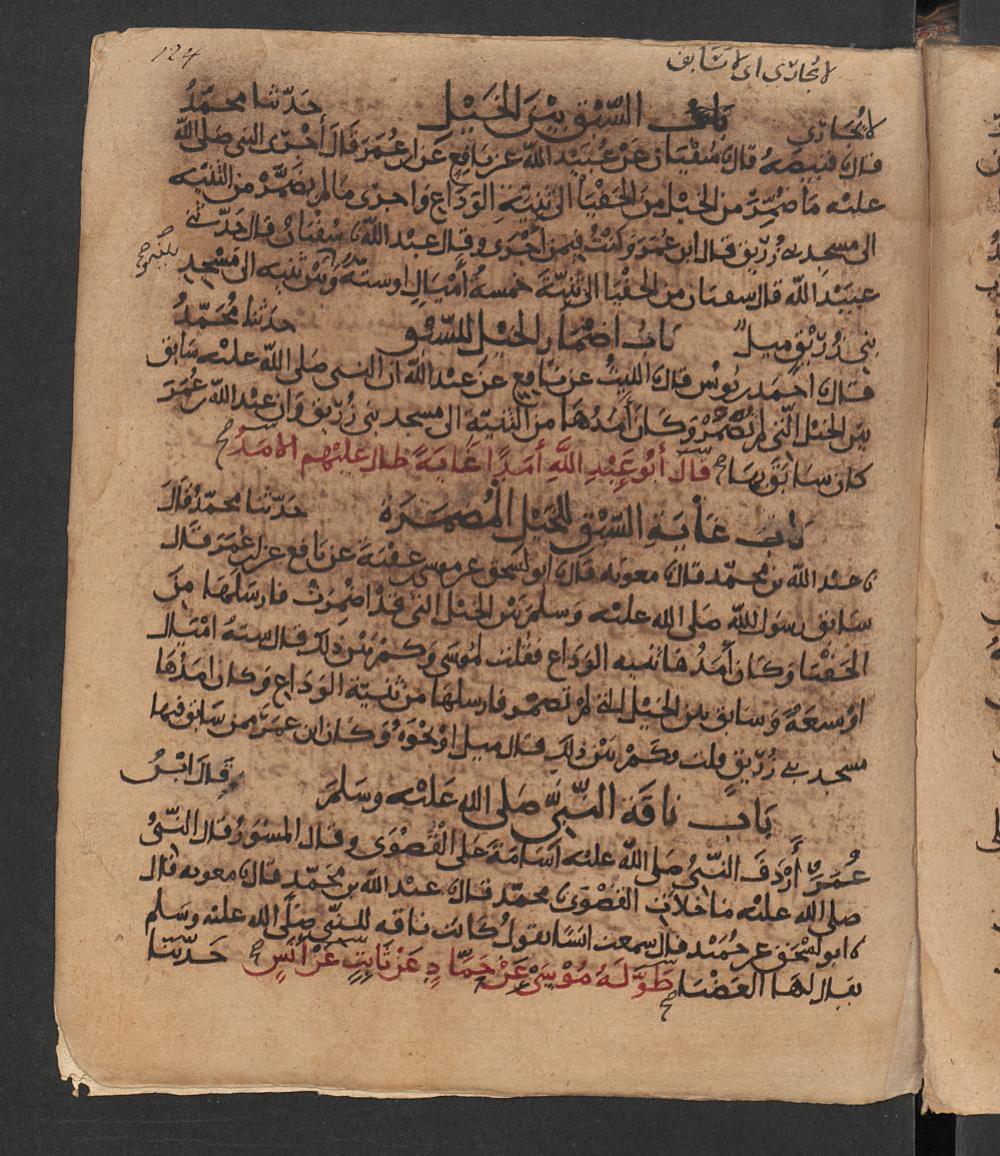 124
لا تجارى اى لا تسابق
لا تجارى
باب السبق بين الخيل حدثنا محمد
قال نا قبيصة قال نا سفيان عن عبيد الله عن نافع عن ابن عمر قال أجرى النبي صلى الله
عليه ما ضمر من الخيل من الحفيا الى ثنية الوداع واجرى ما لم يضمر من الثنيه
الى مسجد بنى زريق قال ابن عمر وكنت فيمن أجرى وقال عبد الله نا سفيان قال حدثني
عبيد الله قال سفيان من الحفيا الى ثنية خمسة أميال او ستة وبين ثنيه الى مسجد
بنى زريق ميل باب اضمار الخيل للسبق حدثنا محمد
قال نا احمد بن يونس قال نا الليث عن نافع عن عبد الله ان النبي صلى الله عليه سابق
بين الخيل التي لم تضمر وكان أمدها من الثنية الى مسجد بنى زريق وان عبد الله بن عمر
كان سابق بها قال أبو عبد الله أمدا غاية طال عليهم الامد
باب غاية السبق للخيل المضمرة حدثنا محمد قال
نا عبد الله بن محمد قال نا معويه قال نا ابو إسحق عن موسى بن عقبة عن نافع عن ابن عمر قال
سابق رسول الله صلى الله عليه وسلم بين الخيل التي قد اضمرت فارسلها من
الحفيا وكان أمدها ثنيه الوداع فقلت لموسى وكم بين ذلك قال سته اميال
او سبعة وسابق بين الخيل التي لم تضمر فارسلها من ثنية الوداع وكان امدها
مسجد بنى زريق قلت وكم بين ذلك قال ميل او نحوه وكان ابن عمر ممن سابق فيها
باب ناقة النبي صلى الله عليه وسلم قال ابن
عمر أردف النبي صلى الله عليه أسامة على القصوى وقال المسور قال النبي
صلى الله عليه ما خلات القصوى نا محمد قال نا عبد الله بن محمد قال نا معويه قال
نا ابو إسحق عن حميد قال سمعت انسا يقول كانت ناقه للنبي صلى الله عليه وسلم
يقال لها العضبا طوله موسى عن حماد عن ثابت عن أنس حدثنا